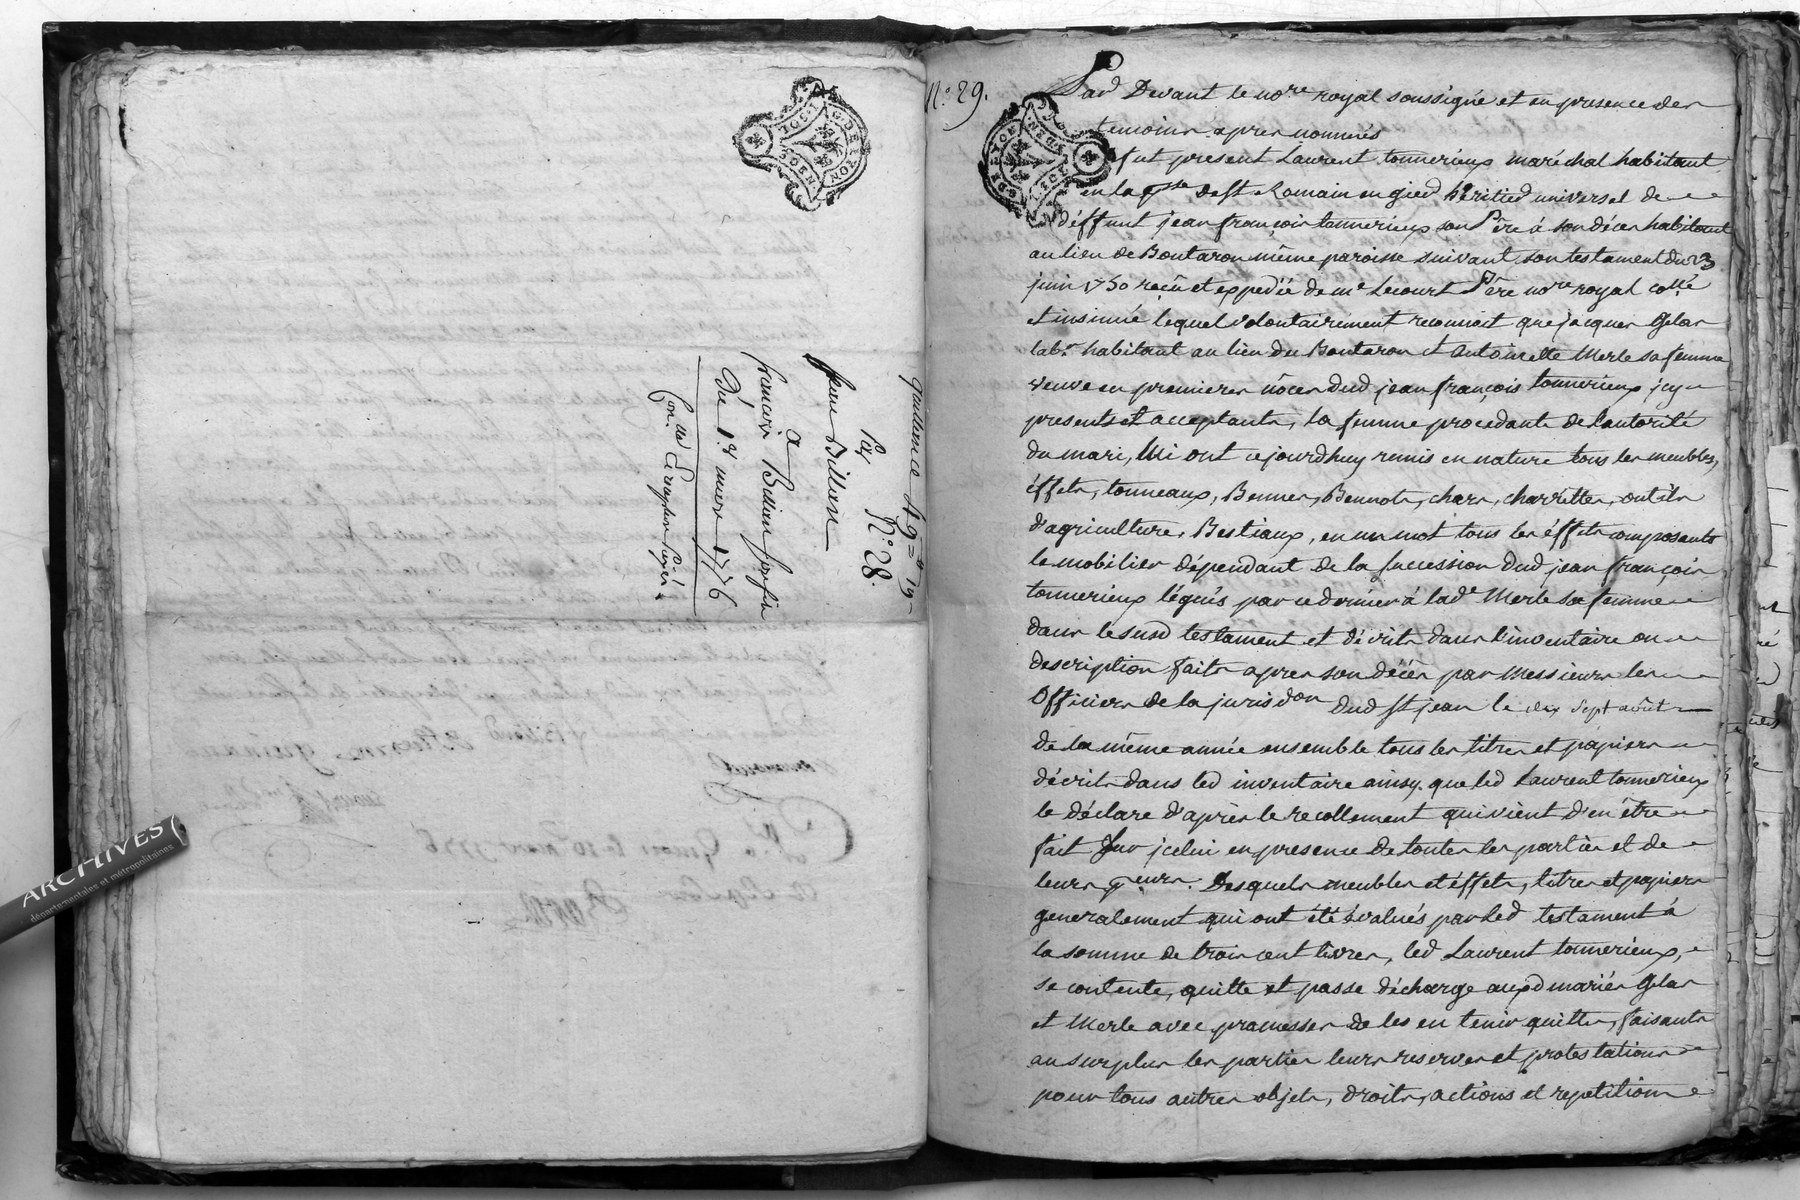 N.° 28.
Jean Billion
a
françois Billion son fils
Du 1er mars 1776
ARCHIVES
départementales et métropolitaines
N.° 29.
Par Devant le nore royal soussigné et en presence des
temoins apres nommés
fut present Laurent tonnerieux maréchal habitant
en la psse de St Romain en gier héritier universel de
déffunt jean françois tonnerieux son Père à son décès habitant
au lieu de Bontaron même paroisse suivant son testament du 23
juin 1750 reçu et expedié de me Lecourt Père nore royal collé
et insinué lequel volontairement reconnoit que jacques Gelas
labr habitant au lieu du Bontaron et Antoinette Merle sa femme
veuve en premieres nôces dud jean françois tonnerieux jcy
presents et acceptants, la femme procedante de l'autorité
du mari, lui ont cejourdhuy remis en nature tous les meubles,
éffets, tonneaux, Bennes, Bennots, chars, charrettes, outils
d'agriculture, Bestiaux, en un mot tous les éffets composants
le mobilier dépendant de la succession dud jean françois
tonnerieux légués par ce dernier à lade Merle sa femme
dans le susd testament et décrits dans l'inventaire ou
description faits apres son décès par Messieurs les
Officiers de la jurisdon dud St jean le dix sept août
de la même année ensemble tous les titres et papiers
décrits dans led inventaire ainsy que led Laurent tonnerieux
le déclare d'après le recollement qui vient d'en être
fait sur jcelui en presence de toutes les parties et de
leurs Desquels meubles et éffets, titres et papiers
generalement qui ont été évalués par led testament à
la somme de trois cent livres, led Laurent tonnerieux,
se contente, quitte et passe décharge auxd mariés Gelas
et Merle avec promesses de les en tenir quittes, faisants
au surplus les parties leurs reserves et protestations
pour tous autres objets, droits, actions et repetitions